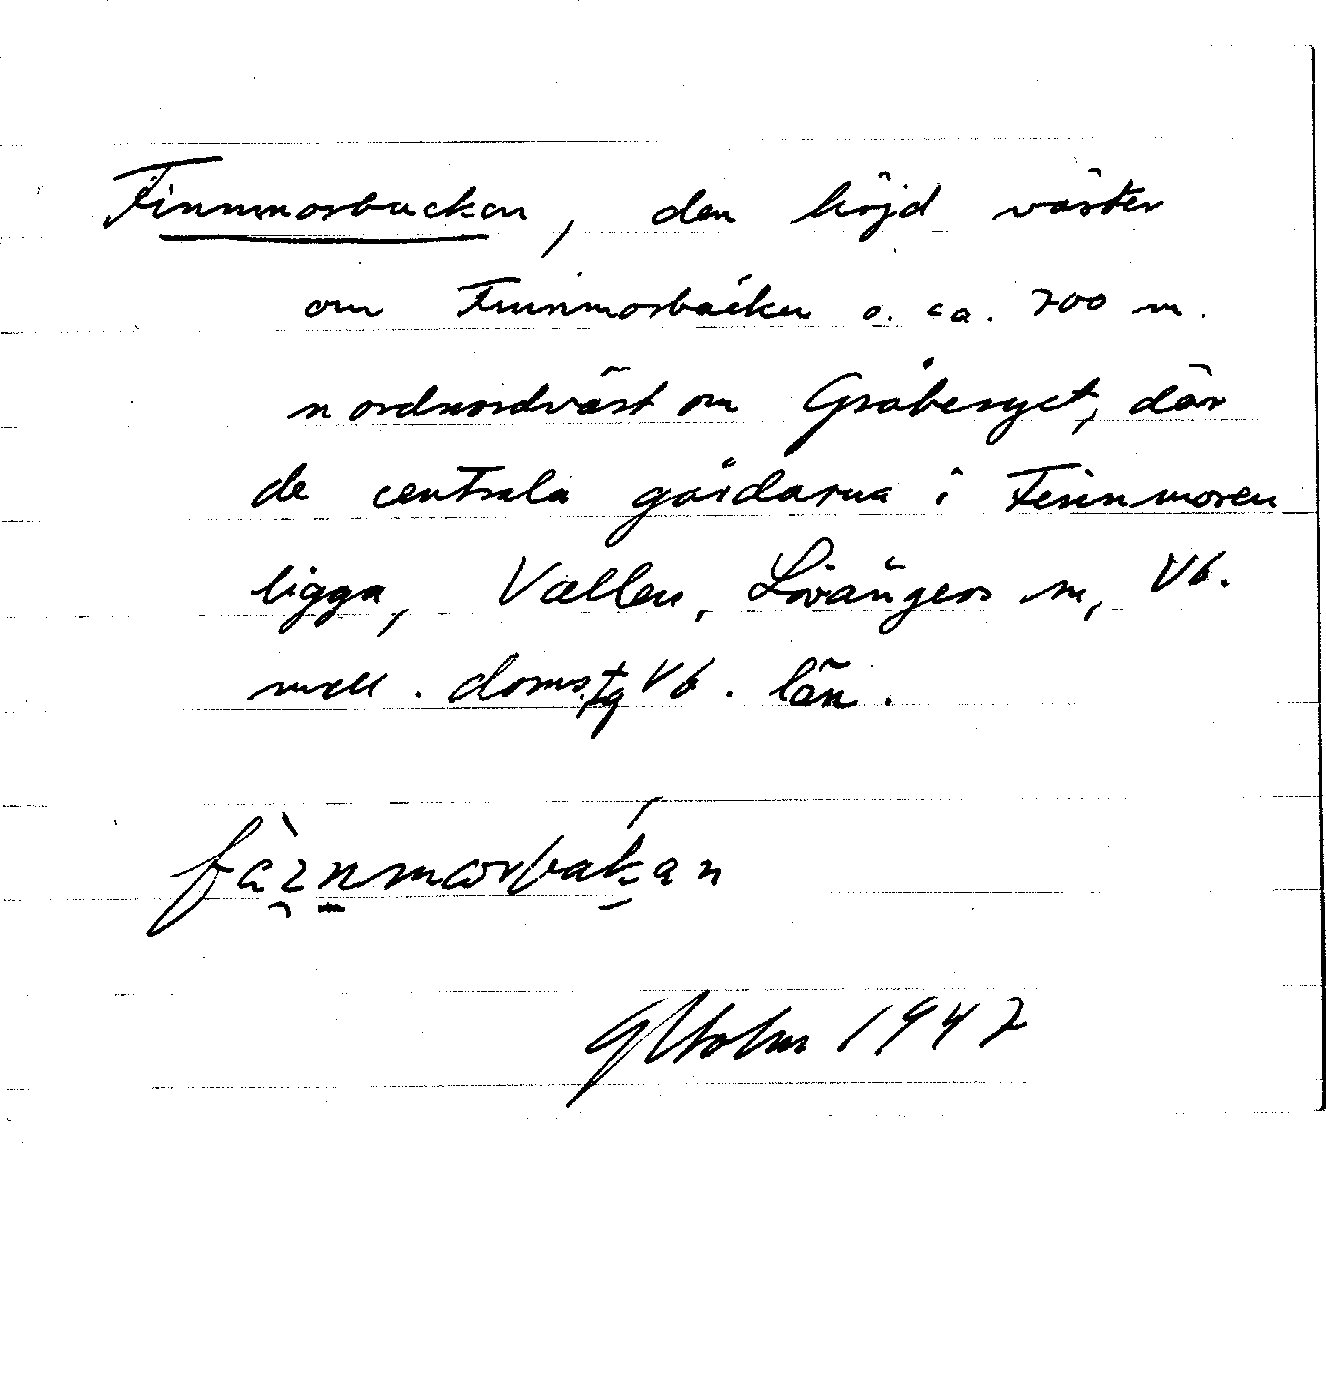 Finnmorbacken, den höjd väster
om Finnmorbäcken o. ca. 700 m.
nordnordväst om Gråberget, där
de centrala gårdarna i Finnmoren
ligga, Vallen, Lövångers sn, Vb.
mell. doms.tg Vb. län.
1947